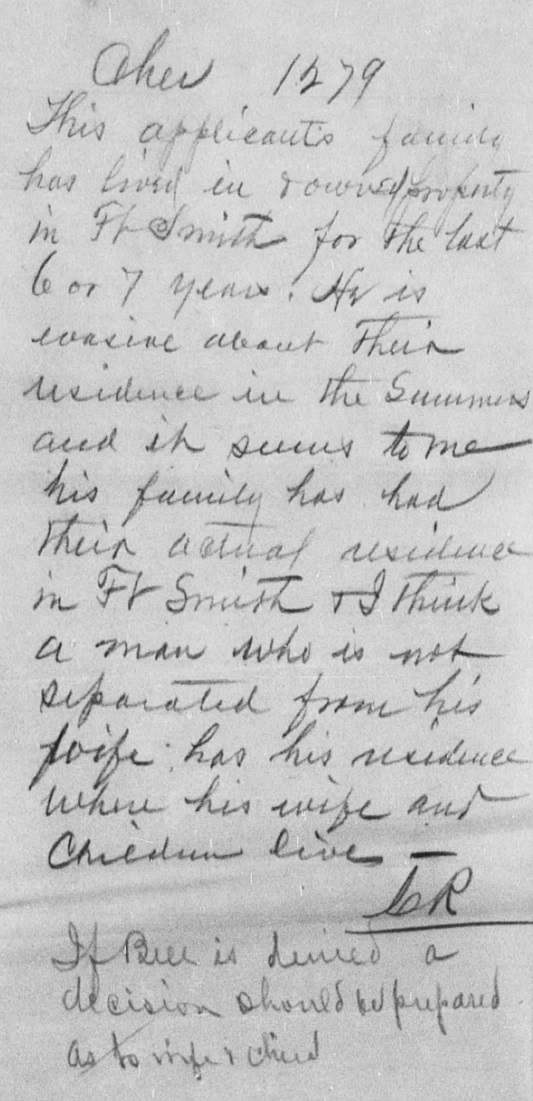 Cher 1279
This applicants family
has lived in & owned property
in Ft Smith for the last
6 or 7 years. He is
evasive about their
residence in the Summers
and it seems to me
his family has had
their actual residence
in Ft Smith & I think
a man who is not
separated from his
wife has his residence
where his wife and
Children live —
CR
If Bill is denied a
decision should be prepared
as to wife & child